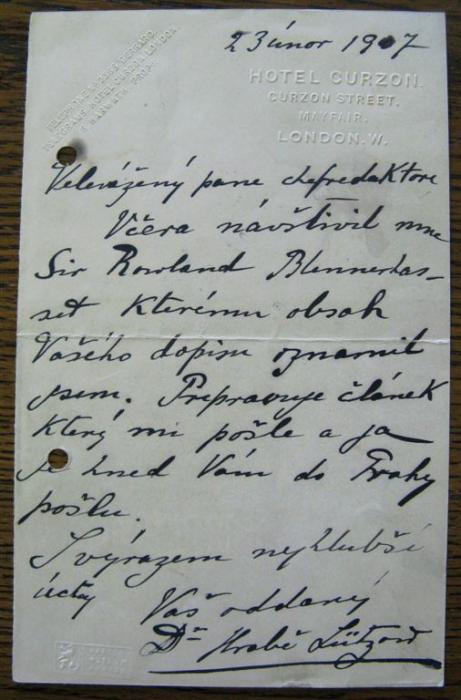 23 únor 1907
HOTEL CURZON.
CURZON STREET,
MAYFAIR.
LONDON. W.
Velevážený pane chefredaktore
Včera návštivil mne
Sir Rowland Blennerhas-
set kterému obsah
Vašého dopisu oznamil
jsem. Prepravuje článek
který mi pošle a ja
je hned Vám do Prahy
pošlu.
S výrazem nejhlubší
úcty
Váš oddaný
Dr Hrabě Lützow